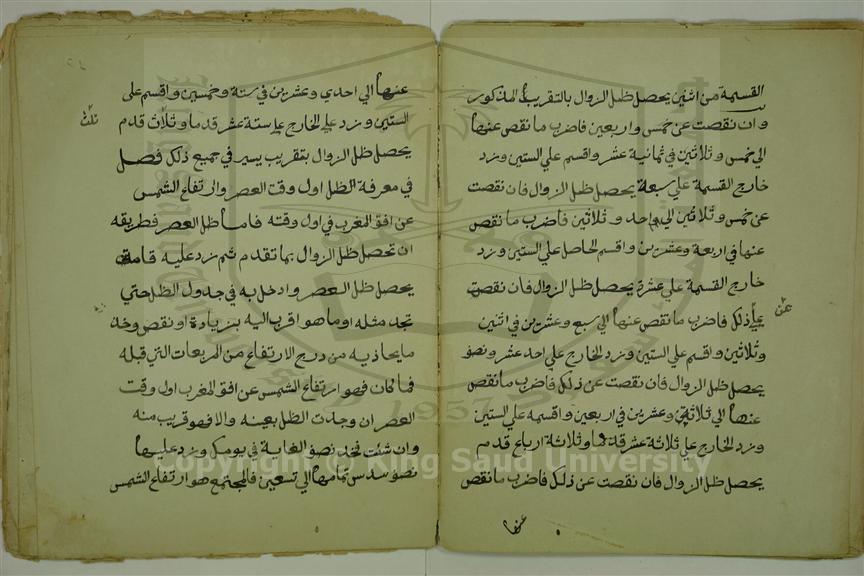 القسمة من اثنين يحصل ظل الزوال بالتقريب المذكور
وان نقصت عن خمس واربعين فاضرب ما نقص عنها
الي خمس وثلاثين في ثمانية عشر واقسم علي الستين وزد
خارج القسمة علي سبعة يحصل ظل الزوال فان نقصت
عن خمس وثلاثين الي واحد وثلاثين فاضرب ما نقص
عنها في اربعة وعشرين واقسم الحاصل علي الستين وزد
خارج القسمة علي عشرة يحصل ظل الزوال فان نقصت
علي ذلك فاضرب ما نقص عنها الي سبع وعشرين في اثنين
وثلاثين واقسم علي الستين وزد الخارج علي احد عشر ونصف
يحصل ظل الزوال فان نقصت عن ذلك فاضرب ما نقص
عنها الي ثلاثة وعشرين في اربعين واقسمه علي الستين
وزد الخارج علي ثلاثة عشر قدما وثلاثة ارباع قدم
يحصل ظل الزوال فان نقصت عن ذلك فاضرب ما نقص
عنها
عن
عنها الي احدي وعشرين في ستة وخمسين واقسم علي
الستين وزد علي الخارج علي ستة عشر قدما وثلاث قدم
ثلث
يحصل ظل الزوال بتقريب يسير في جميع ذلك فصل
في معرفة الظل اول وقت العصر وارتفاع الشمس
عن افق المغرب في اول وقته فاما ظل العصر فطريقه
ان تحصل ظل الزوال بما تقدم ثم زد عليه قامة
يحصل ظل العصر وادخل به في جدول الظل حتي
تجد مثله او ما هو اقرب اليه بزيادة او نقص وخذ
ما يحاذيه من درج الارتفاع من المربعات التي قبله
فما كان فهو ارتفاع الشمس عن افق المغرب اول وقت
العصر ان وجدت الظل بعينه والا فهو قريب منه
وان شئت فخذ نصف الغاية في يومك وزد عليها
نصف سدس تمامها الي تسعين فالمجتمع هو ارتفاع الشمس
Copyright © King Saud University
1957